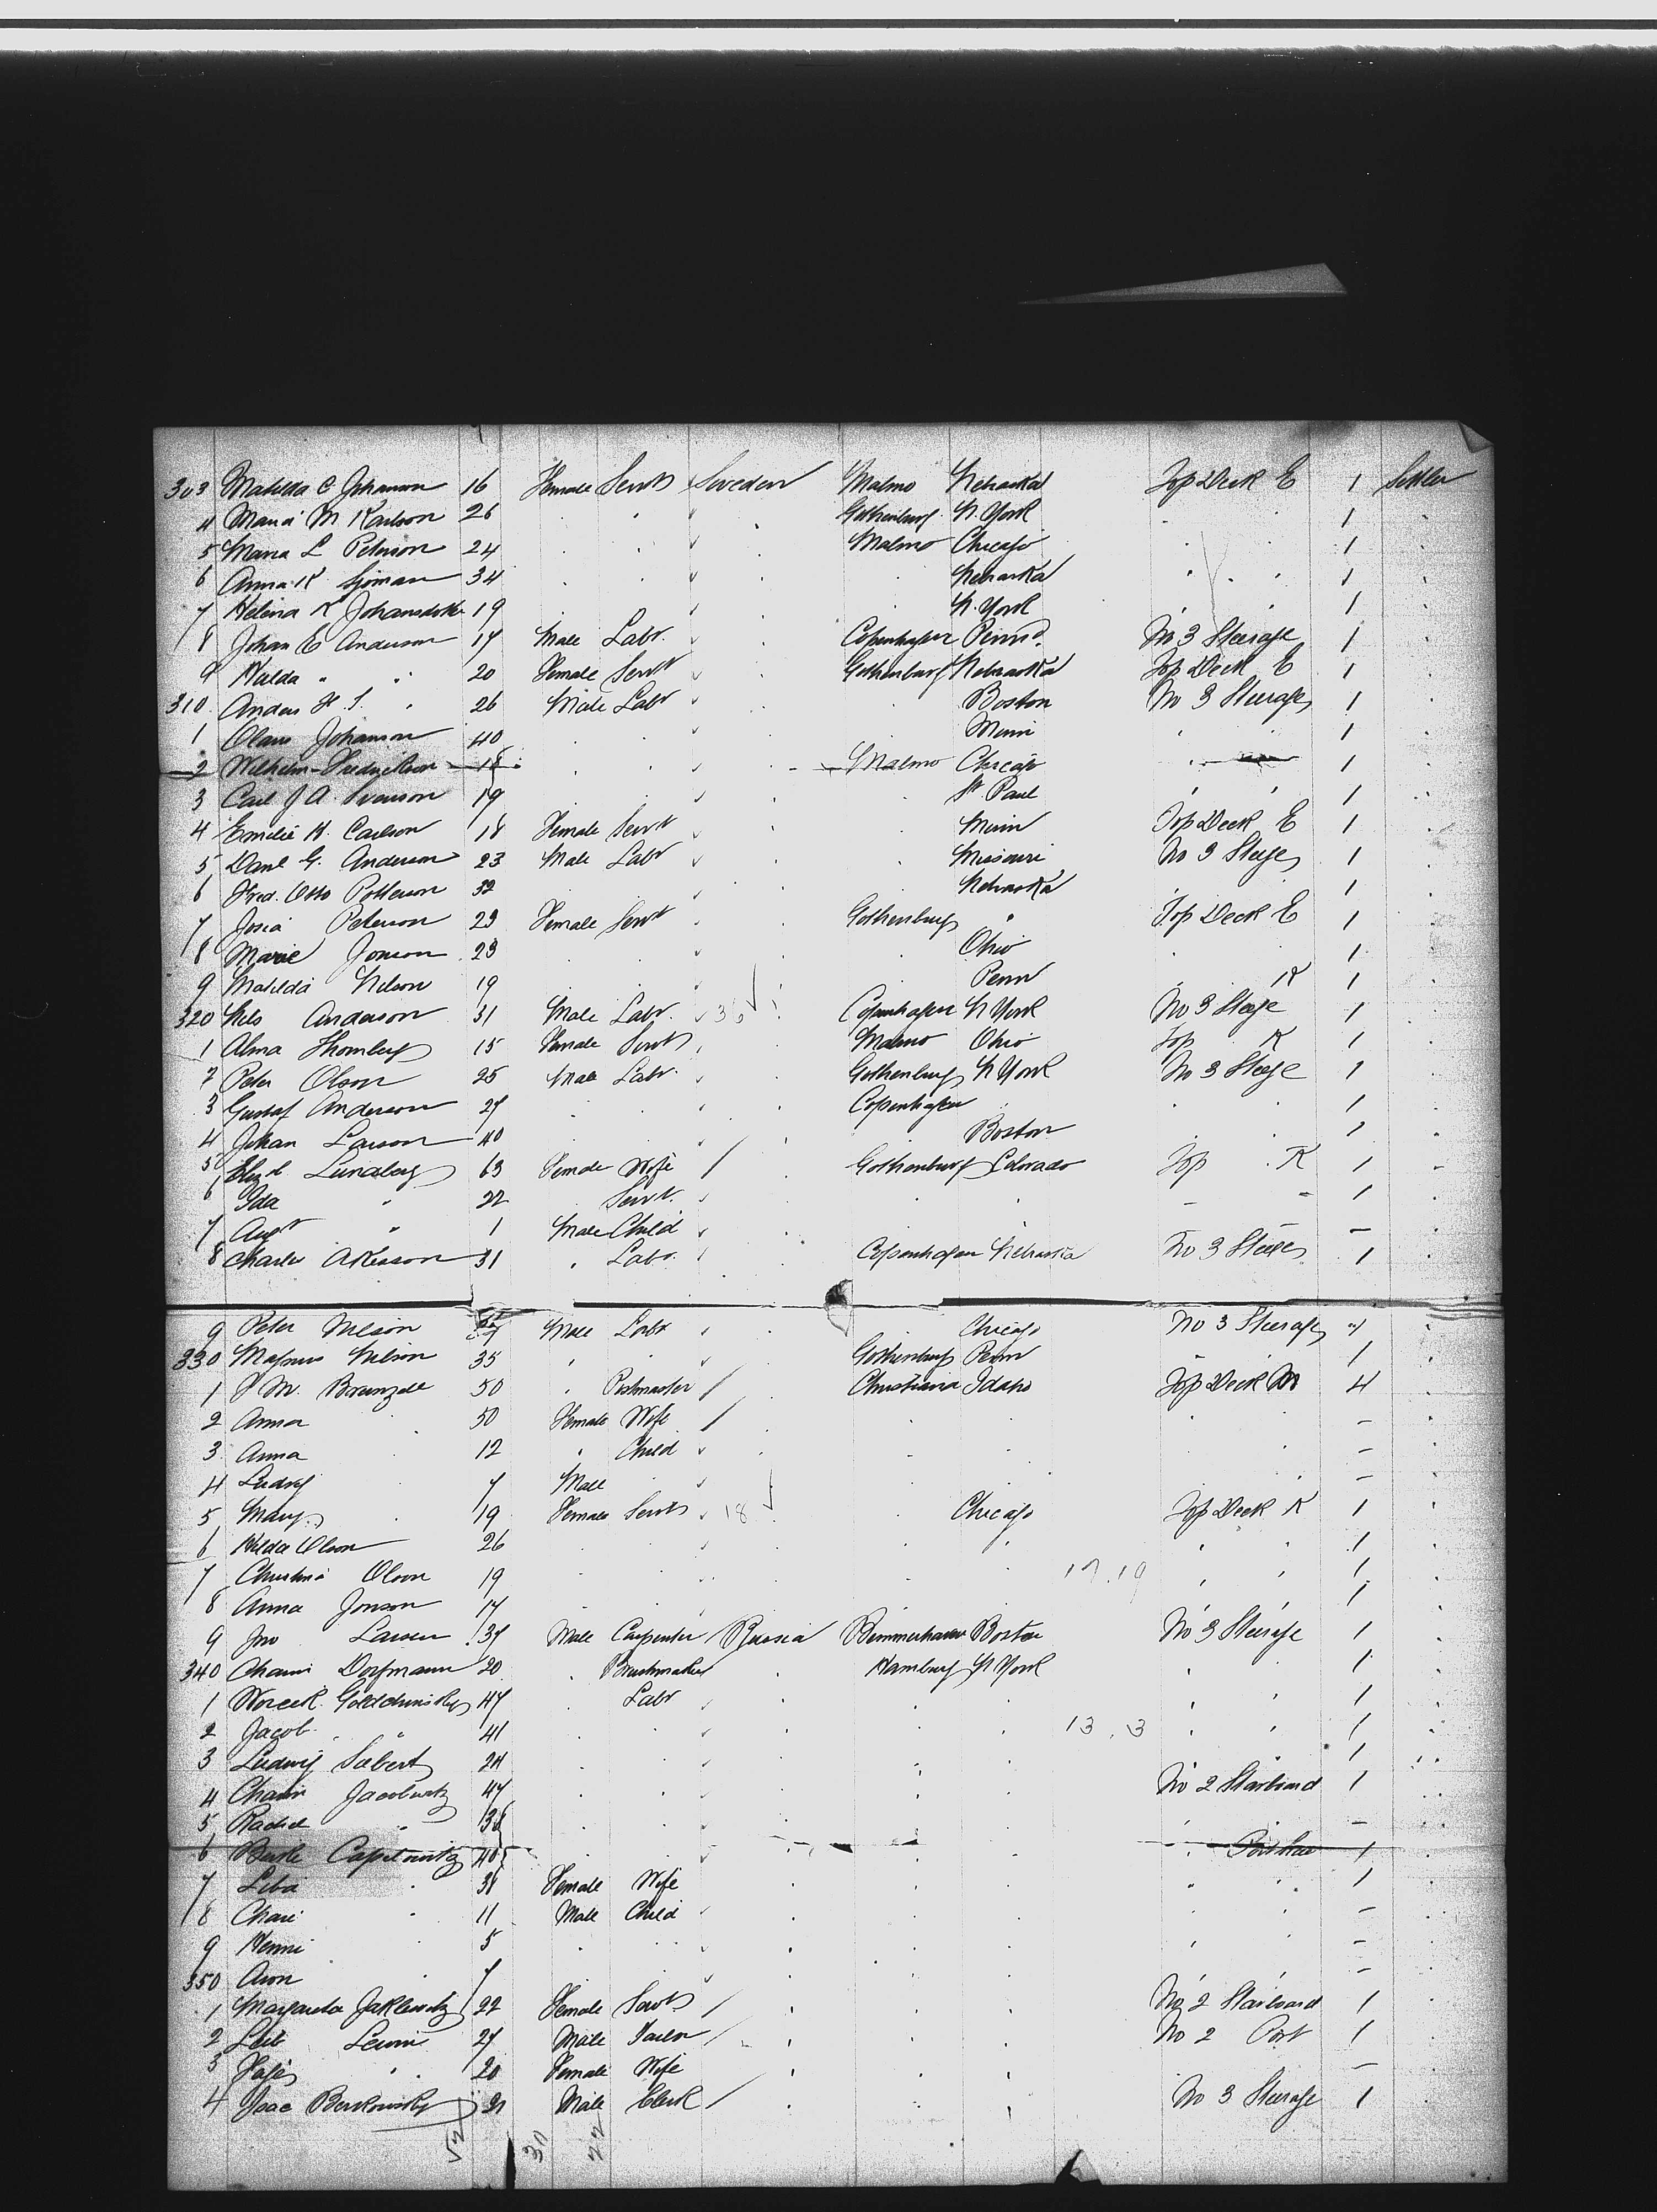 303 Matilda C Johanson 16 Female Servt Sweden Malmo Nebraska Top Deck E 1 Settler
4 Maria M Karlson 26 " " " Gothenburg N. York " 1
5 Maria L Peterson 24 " " " Malmo Chicago " 1
6 Anna K Sjoman 34 " " " " Nebraska " " 1
7 Helena K Johansdotter 19 " " " N. York " " 1
8 Johan E Anderson 17 Male Labr. " Copenhagen Penna. No 3 Steerage 1
9 Hulda " " 20 Female Servt " Gothenburg Nebraska Top Deck E 1
310 Anders F. S. " 26 Male Labr " " Boston No 3 Steerage 1
1 Olaus Johanson 40 " " " " Minn " 1
2 Wilhelm Fredrickson 18 " " " Malmo Chicago " 1
3 Carl J A. Svenson 19 " " " " St Paul " " 1
4 Emilie H. Carlson 18 Female Servt " " Minn Top Deck E 1
5 Danl G. Anderson 23 Male Labr " " Missouri No 3 Steege 1
6 Fred. Otto Petterson 32 " " " " Nebraska " 1
7 Josia Peterson 29 Female Servt " Gothenburg " Top Deck E 1
8 Marie Jonson 23 " " " " Ohio " 1
9 Matilda Nelson 19 " " " " Penn " K 1
320 Nels Anderson 31 Male Labr. Copenhagen N York No 3 Steege 1
1 Alma Thornberg 15 Female Servt " Malmo Ohio Top K 1
2 Peter Olson 25 Male Labr. " Gothenburg N York No 3 Steege 1
3 Gustaf Anderson 27 " " " Copenhagen " " 1
4 Johan Larson 40 " " " " Boston " 1
5 Elizt Lundberg 63 Female Wife / Gothenburg Colorado Top K 1
6 Ida " 22 " Servt. " " " - - 1
7 Augt " 1 Male Child " " " - - -
8 Charles Akesson 31 " Labr. Copenhagen Nebraska No 3 Steege 1
9 Peter Nelson Male Labr " Chicago No 3 Steerage 1
330 Magnus Nilson 35 " " " Gothenburg Penn 1
1 50 " Postmaster / Christiana Idaho Top Deck M 4
2 Anna " 50 Female Wife / " " " -
3 Anna 12 " Child " " " " -
4 Ludvig " 7 Male " " " -
5 Mary " 19 Female Servt 18 " Chicago Top Deck K 1
6 Hilda Olson 26 " " " " " " " 1
7 Christina Olson 19 " " " " " 17.19 " " 1
8 Anna Jonson 17 " " " " " 1
9 Jno Larsen 37 Male Carpenter / Russia Bremmerhaven Boston No 3 Steerage 1
340 Chaim Dorfmann 20 " Brushmaker Hamburg N York " 1
1 Goldchinsky 47 " Labr " " " " 1
2 Jacob " 41 " " " " " 13.3 " " 1
3 Ludwig Sabert 24 " " " " " " 1
4 Chaim Jacobwitz 47 " " " " " No 2 Starboard 1
5 Rachel " 38 " " " " " " -
6 Capelowitz 40 " " " " " 1
7 Liba " 38 Female Wife " " " " 1
8 Chaie " 11 Male Child " " " " -
9 Henni 5 " " " " " -
350 Aron " 7 " " " " " -
1 Margareta Jaklewitz 22 Female Servt / " " No 2 Starboard 1
2 Leib Lewin 27 Male Tailor / " " No 2 Port 1
3 " 20 Female Wife " " " -
4 Isac Berkowsky 21 Male Clerk / " " No 3 Steerage 1
52 30 22